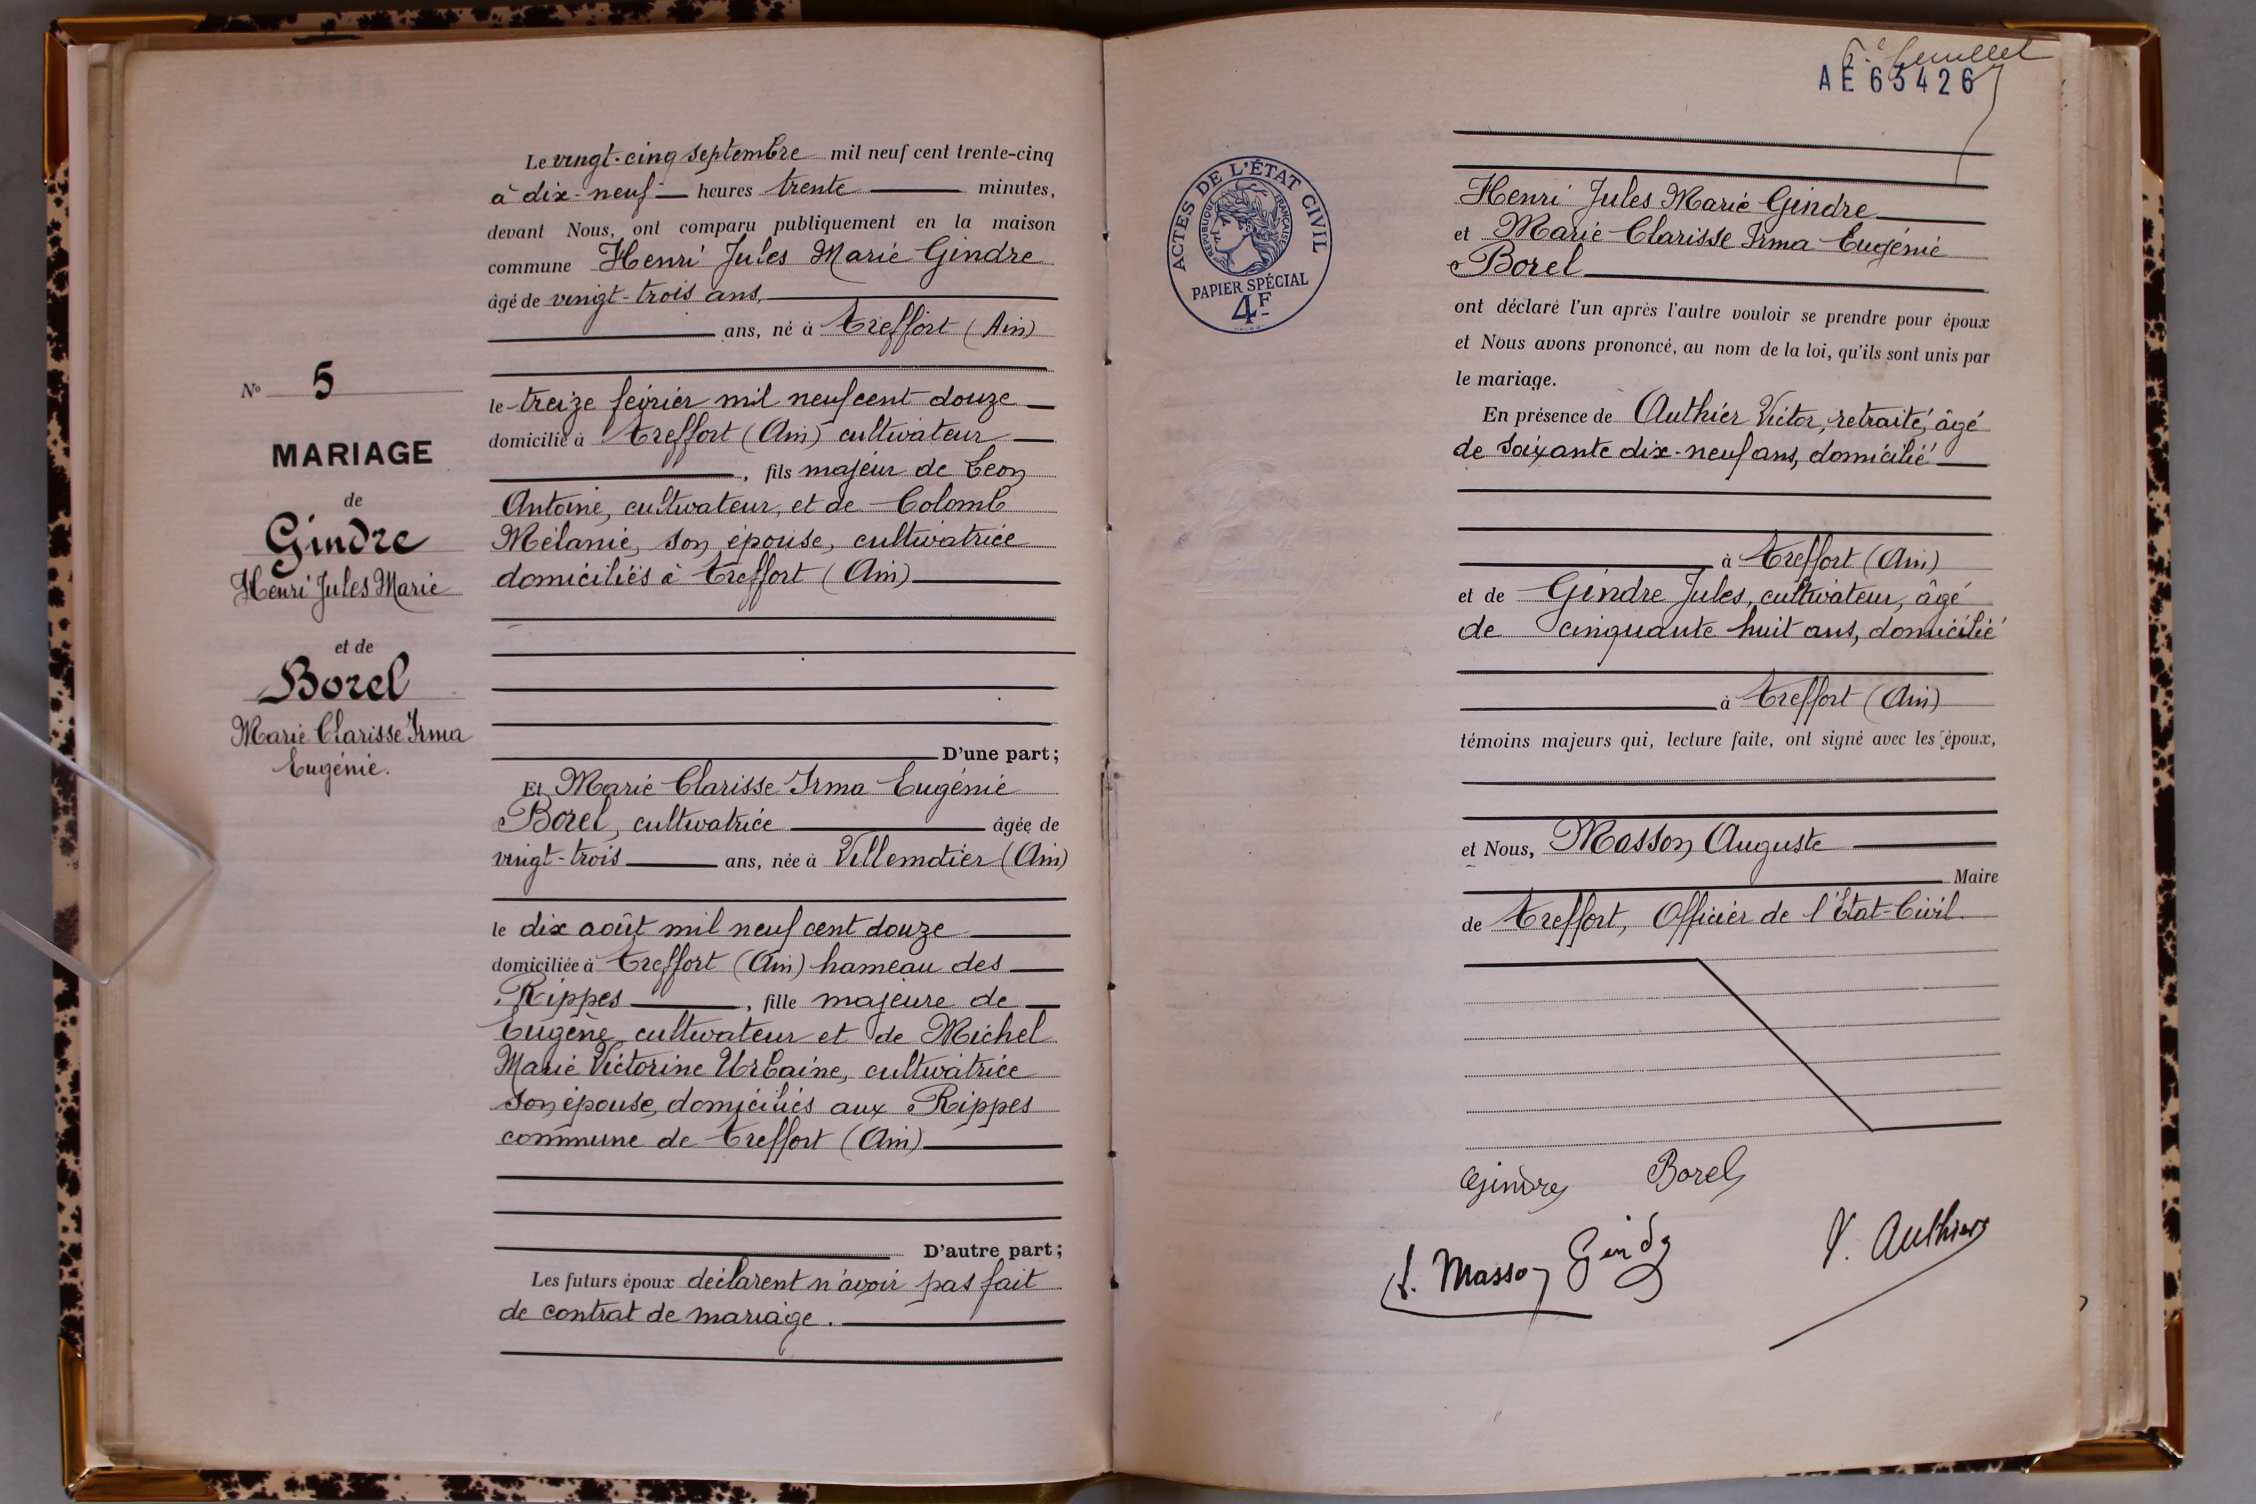 Le vingt-cinq septembre mil neuf cent trente-cinq
à dix-neuf heures trente minutes,
devant Nous, ont comparu publiquement en la maison
commune Henri Jules Marie Gindre
âgé de vingt-trois ans,
ans, né à Treffort (Ain)
le treize février mil neuf cent douze
domicilié à Treffort (Ain) cultivateur
, fils majeur de Léon
Antoine, cultivateur, et de Colomb
Mélanie, son épouse, cultivatrice
domiciliés à Treffort (Ain)
D'une part;
Et Marie Clarisse Irma Eugénie
Borel, cultivatrice âgée de
vingt-trois ans, née à Villemotier (Ain)
le dix août mil neuf cent douze
domiciliée à Treffort (Ain) hameau des
Rippes, fille majeure de
Eugène, cultivateur et de Michel
Marie Victorine Urbaine, cultivatrice
son épouse, domiciliés aux Rippes
commune de Treffort (Ain)
D'autre part;
Les futurs époux déclarent n'avoir pas fait
de contrat de mariage.
No 5
MARIAGE
de
Gindre
Henri Jules Marie
et de
Borel
Marie Clarisse Irma
Eugénie.
feuillet
AE 63426
ACTES DE L'ÉTAT CIVIL
RÉPUBLIQUE FRANÇAISE
PAPIER SPÉCIAL
4F
Henri Jules Marie Gindre
et Marie Clarisse Irma Eugénie
Borel
ont déclaré l'un après l'autre vouloir se prendre pour époux
et Nous avons prononcé, au nom de la loi, qu'ils sont unis par
le mariage.
En présence de Authier Victor, retraité, âgé
de soixante dix-neuf ans, domicilié
à Treffort (Ain)
et de Gindre Jules, cultivateur, âgé
de cinquante huit ans, domicilié
à Treffort (Ain)
témoins majeurs qui, lecture faite, ont signé avec les époux,
et Nous, Masson Auguste
Maire
de Treffort, Officier de l'Etat-Civil.
Gindre Borel
Masson Gindre V. Authier